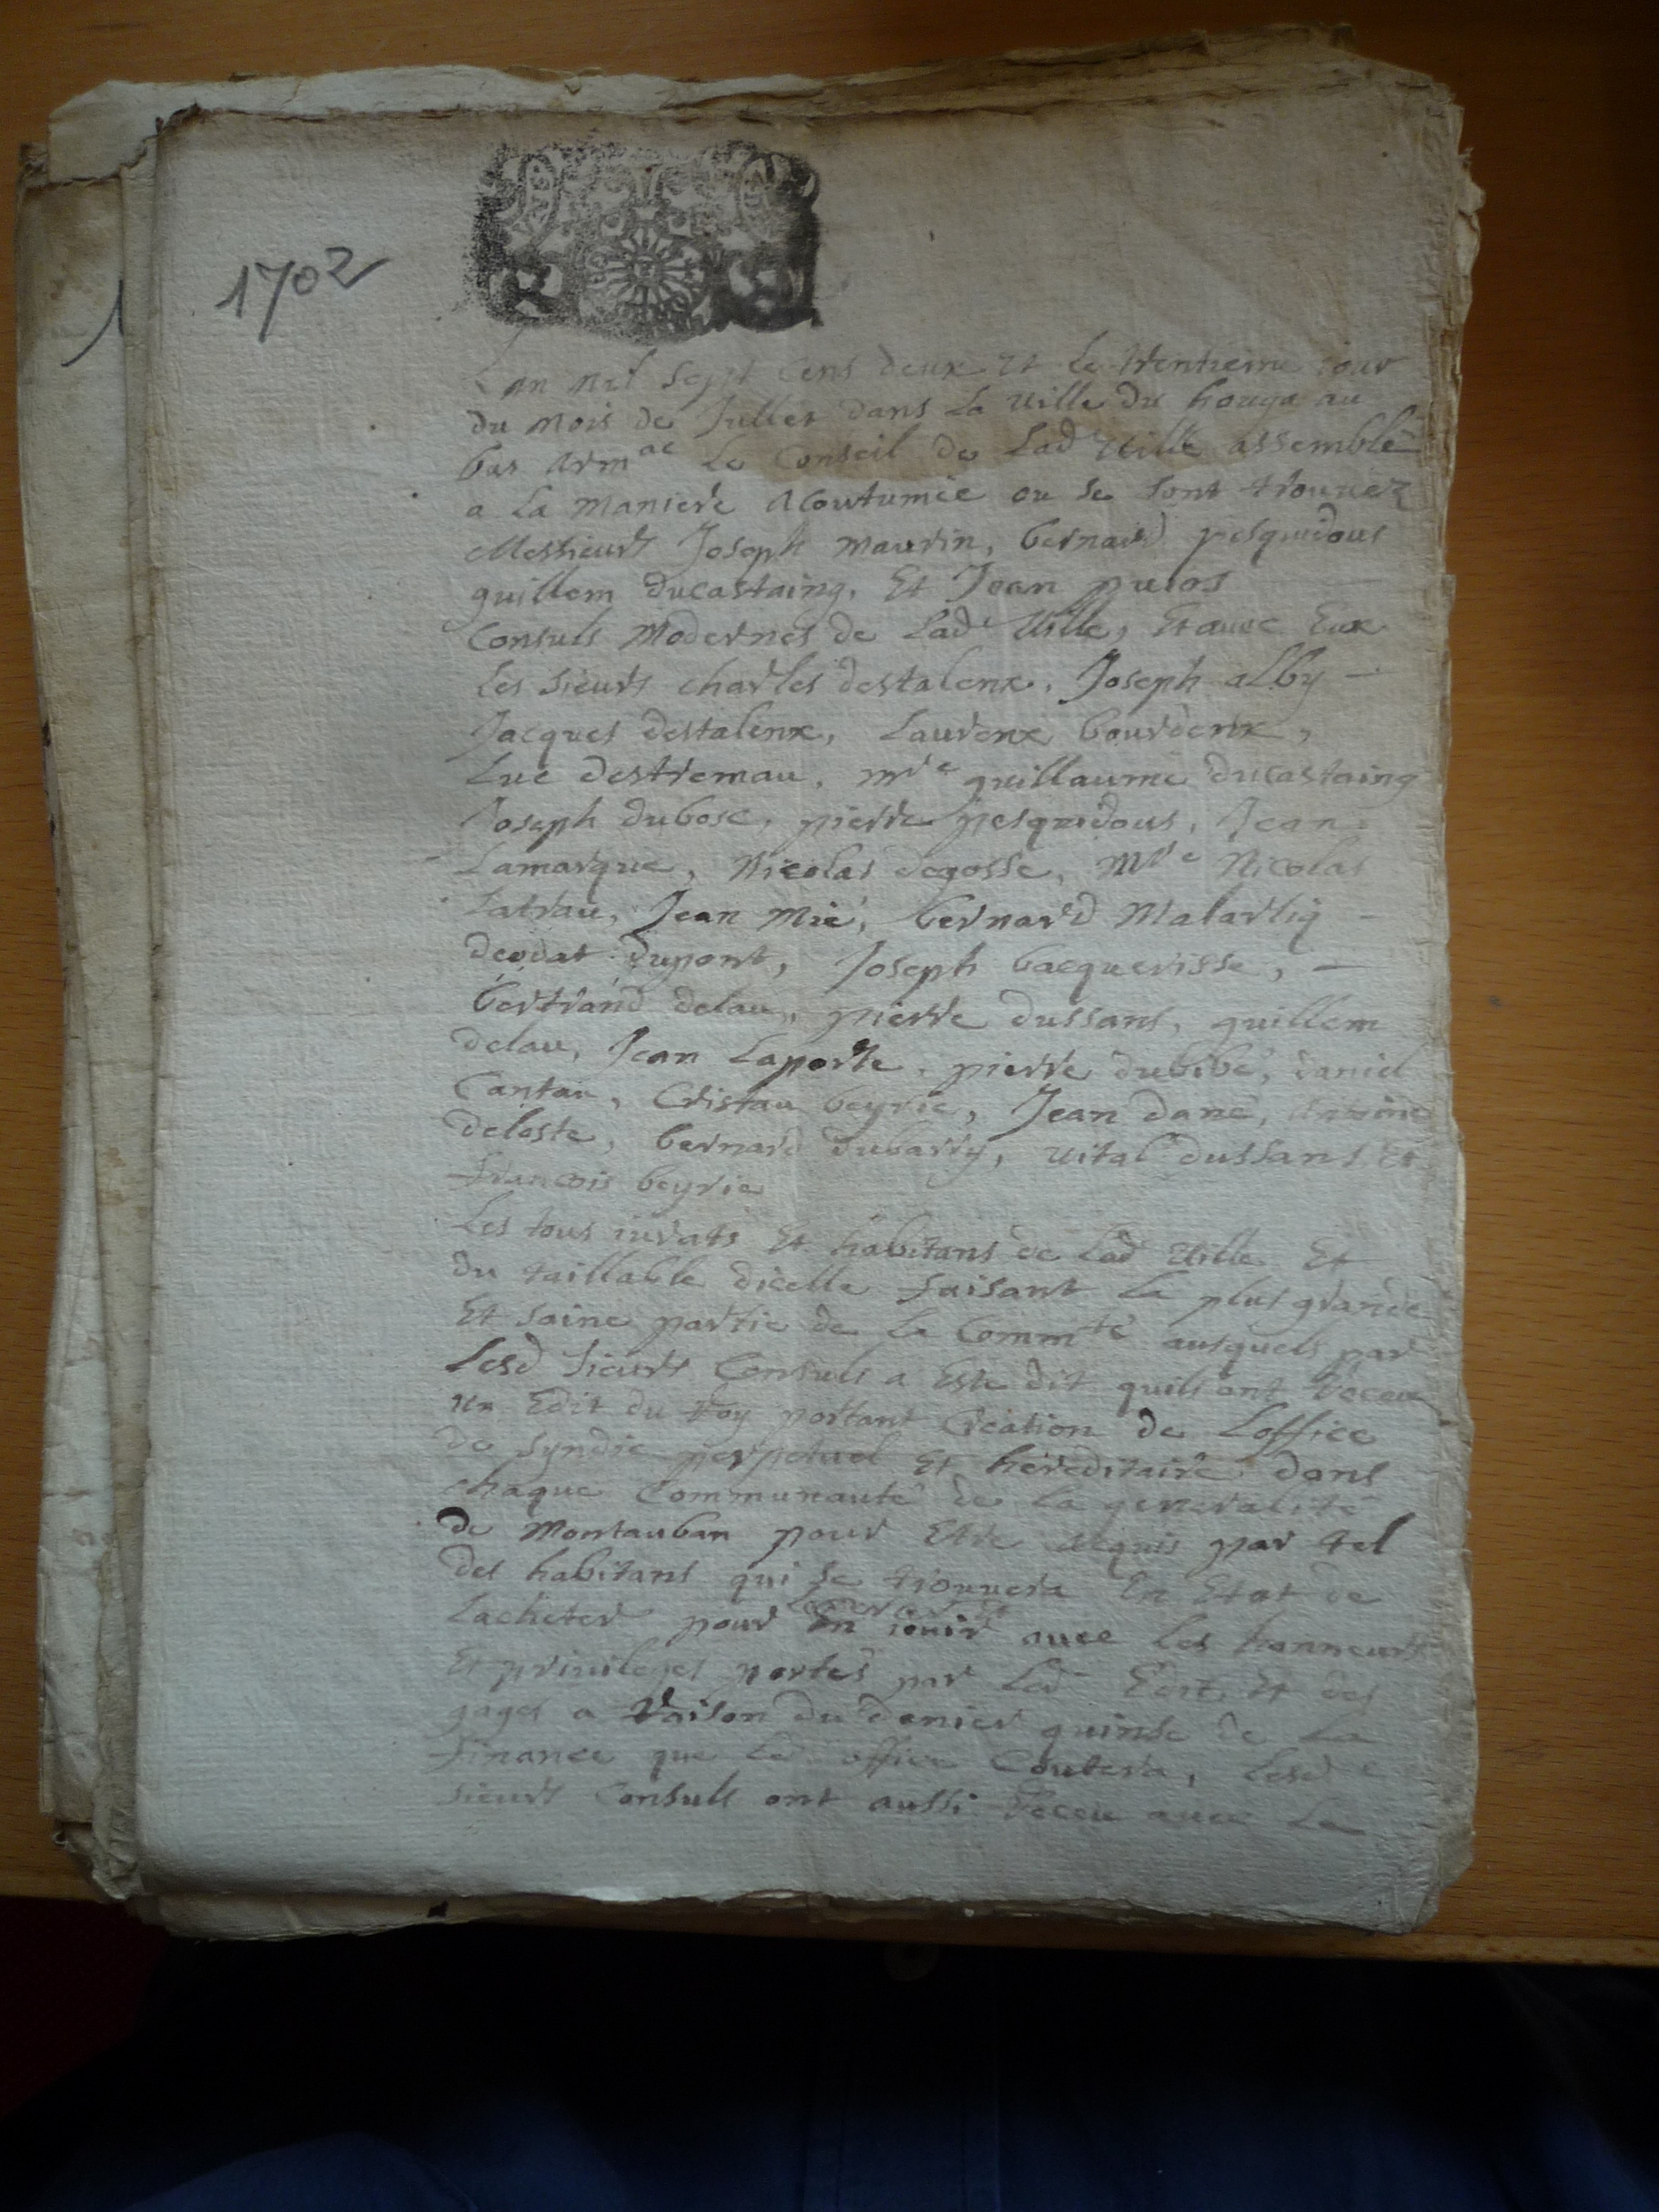 1702
Lan mil Sept Cens deux et le trentieme iour
du mois de Jullet dans La ville du houga au
bas armac Le Conseil de Lad ville assemblé
a La maniere acoutumée ou se sont trouuez
Messieurs Joseph maurin, bernard pesquidous
guillem ducastaing, Et Jean puios
Consuls Modernes de Lade Ville, Et auec Eux
Les sieurs charles destalenx, Joseph alby -
Jacques destalenx, Laurenx bourdenx,
Luc destremau, mre guillaume ducastaing
Joseph dubosc, pierre pesquidous, Jean
Lamarque, Nicolas degosse, Mre Nicolas
Latrau, Jean Mié, bernard Malartiq -
deodat dupont, Joseph bacquerisse, -
bertrand delau, pierre dussans, guillem
delau, Jean Laporte, pierre dubibé, daniel
Cantau, Cristau beyrie, Jean dané, Antoine
deloste, bernard dubarry, vital dussans Et
francois beyrie
Les tous iurats Et habitans de Lad ville Et
du taillable dicelle faisant La plus grande
Et saine partie de La Commté ausquels par
Lesd sieurs Consuls a Este dit quils ont receu
un Edit du roy portant Creation de Loffice
de syndic perpetuel Et hereditaire dans
chaque Communauté de la generalité
de Montauban pour Etre aquis par tel
des habitans qui se trouuera En Etat de
Lacheter pour En iouir auec Les honneurs
Et priuileges portés par Led Edit, Et des
gages a raison du denier quinse de La
finance que Led office Coutera, Lesde
sieurs Consuls ont aussi receu auec La